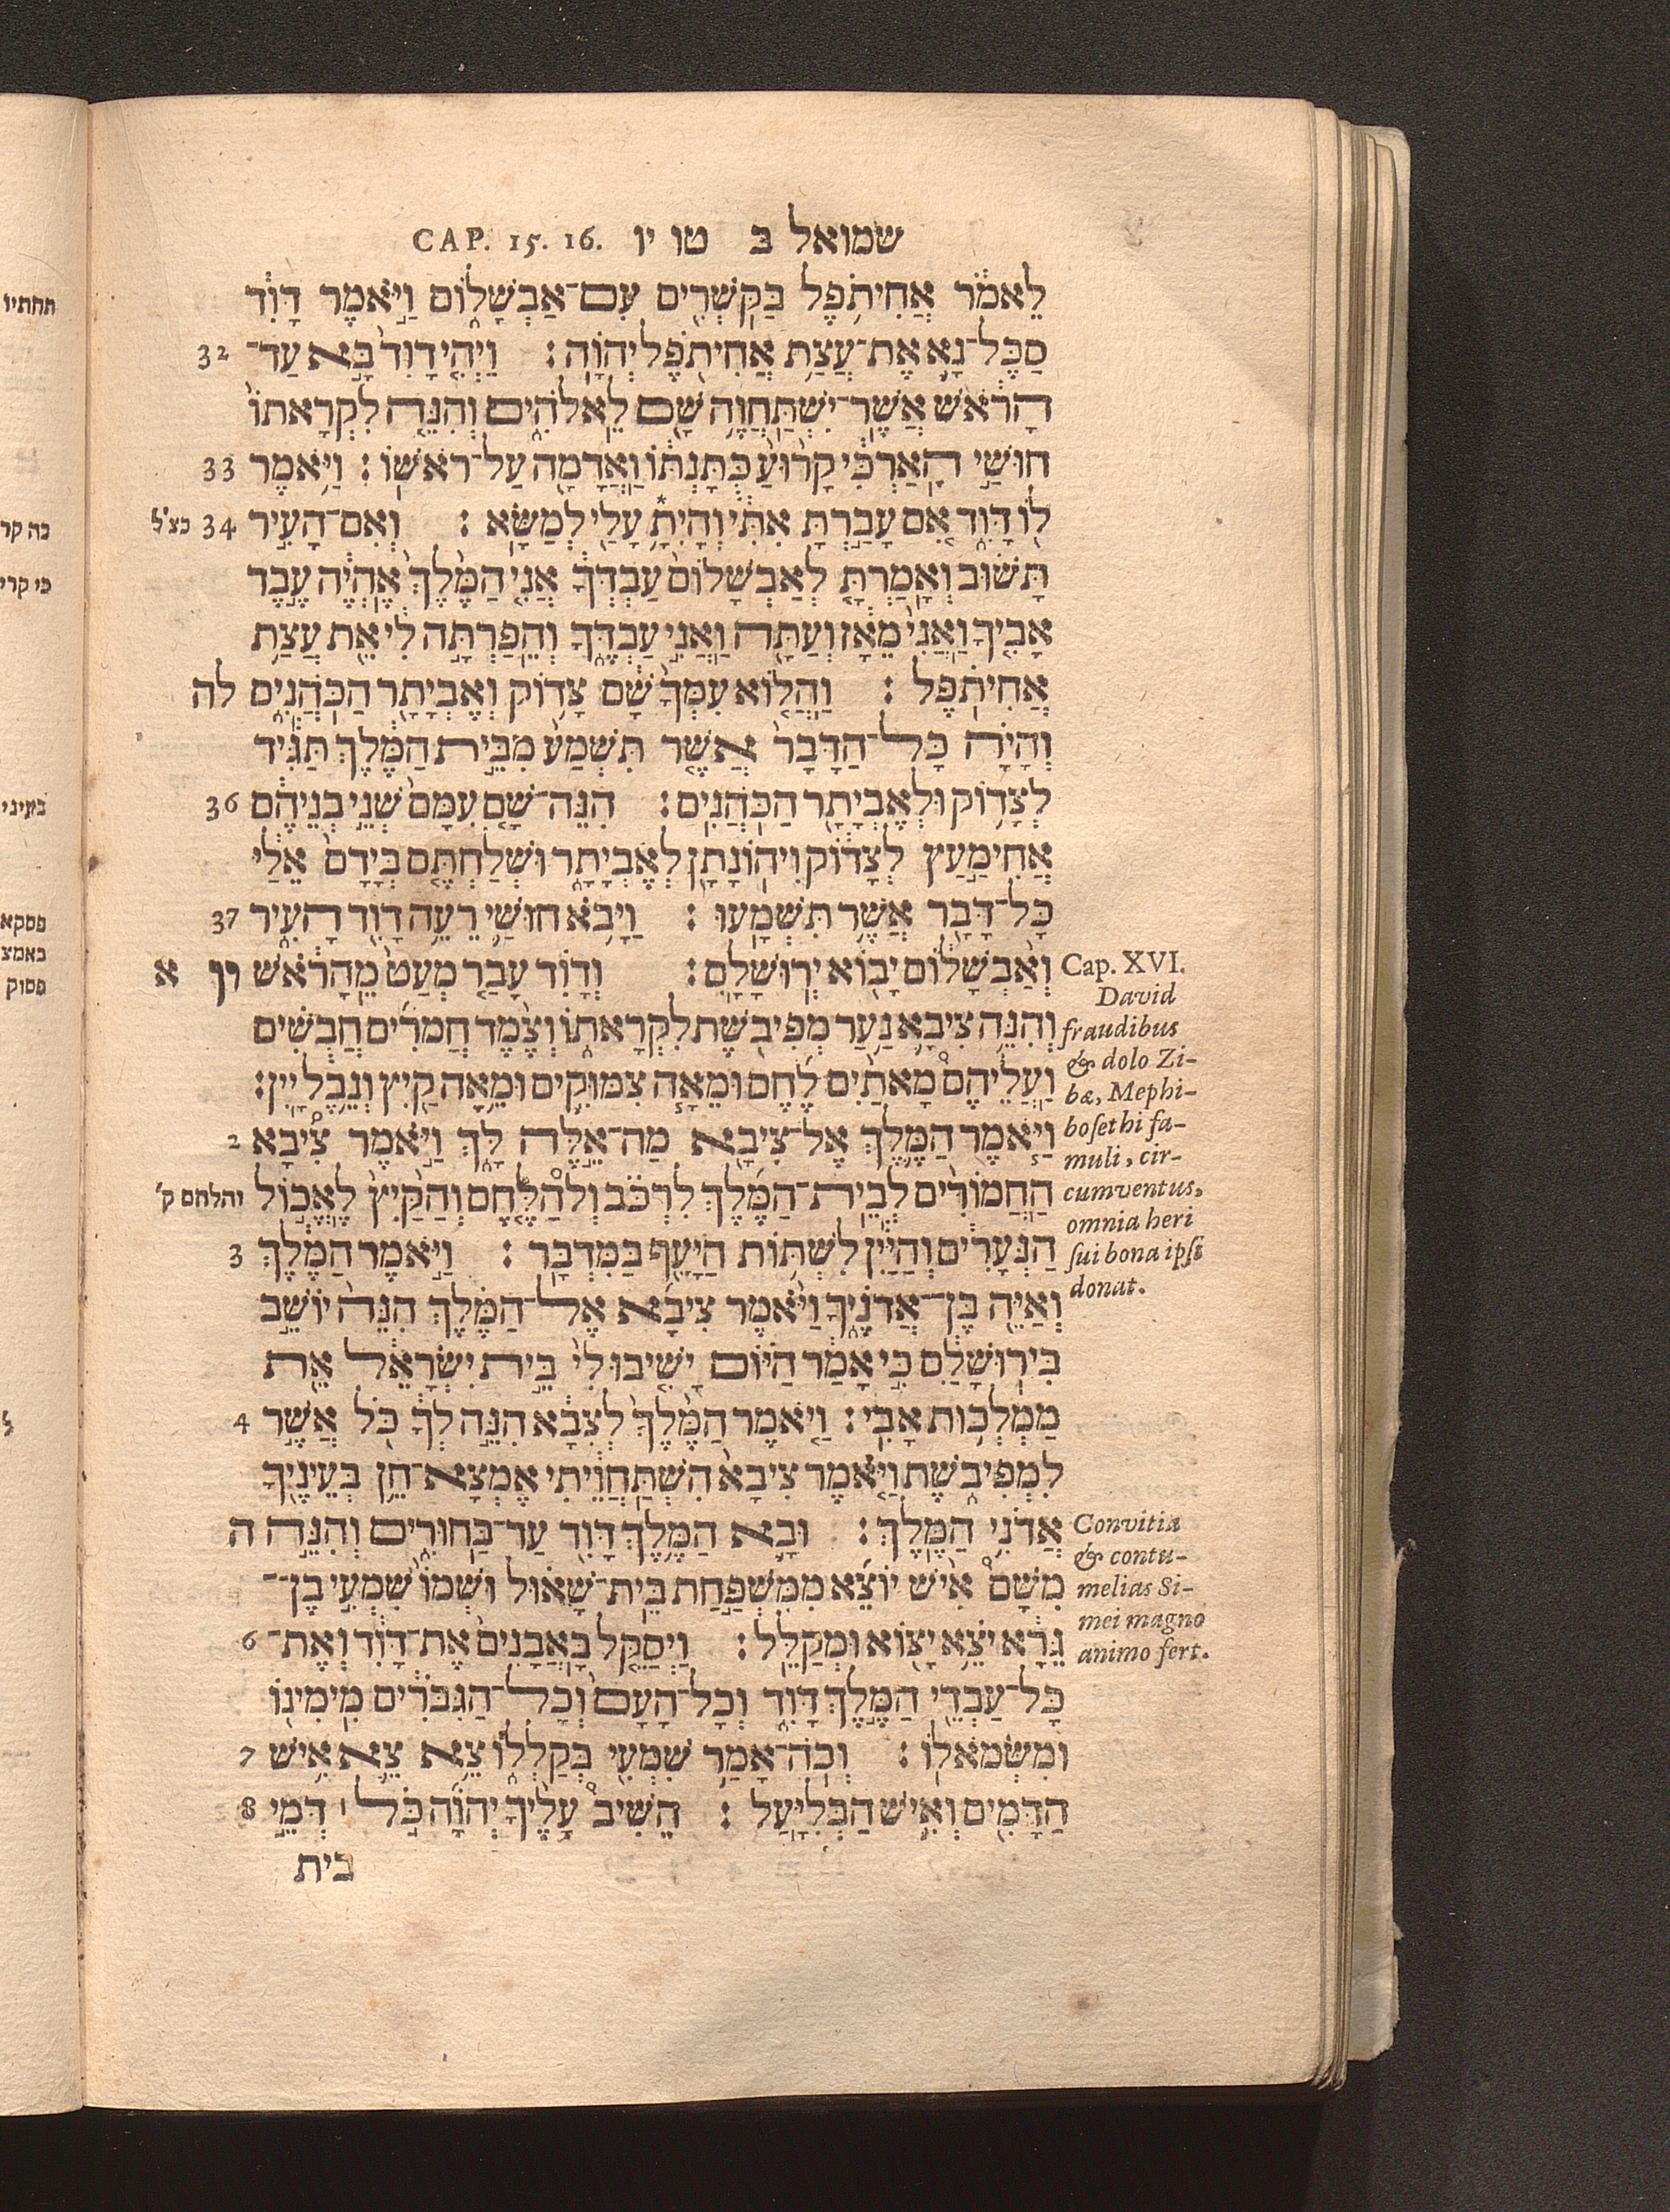 שמואל ב טו יו CAP. 15. 16.
לֵאמֹר אֲחִיתֹפֶל בַּקֹּשְׁרִים עִם־אַבְשָׁלוֹם וַיֹּאמֶר דָּוִד
סַכֶּל־נָא אֶת־עֲצַת אֲחִיתֹפֶל יְהוָֹה׃ וַיְהִי דָוִד בָּא עַד־ 32
הָרֹאשׁ אֲשֶׁר־יִשְׁתַּחֲוֶה שָׁם לֵאלֹהִים וְהִנֵּה לִקְרָאתוֹ
חוּשַׁי הָאַרְכִּי קָרוּעַ כְּתָּנְתּוֹ וַאֲדָמָה עַל־רֹאשׁוֹ׃ וַיֹּאמֶר 33
לוֹ דָּוִד אִם עָבַרְתָּ אִתִּי וְהָיִתָ* עָלַי לְמַשָּׂא׃ וְאִם־הָעִיר 34 כצ"ל
תָּשׁוּב וְאָמַרְתָּ לְאַבְשָׁלוֹם עַבְדְּךָ אֲנִי הַמֶּלֶךְ אֶהְיֶה עֶבֶד
אָבִיךָ וַאֲנִי מֵאָז וְעַתָּה וַאֲנִי עַבְדֶּךָ וְהֵפַרְתָּה לִי אֵת עֲצַת
אֲחִיתֹפֶל׃ וַהֲלוֹא עִמְּךָ שָׁם צָדוֹק וְאֶבְיָתָר הַכֹּהֲנִים לה
וְהָיָה כָּל־הַדָּבָר אֲשֶׁר תִּשְׁמַע מִבֵּית הַמֶּלֶךְ תַּגִּיד
לְצָדוֹק וּלְאֶבְיָתָר הַכֹּהֲנִים׃ הִנֵּה־שָׁם עִמָּם שְׁנֵי בְנֵיהֶם 36
אֲחִימַעַץ לְצָדוֹק וִיהוֹנָתָן לְאֶבְיָתָר וּשְׁלַחְתֶּם בְּיָדָם אֵלַי
כָּל־דָּבָר אֲשֶׁר תִּשְׁמָעוּ׃ וַיָּבֹא חוּשַׁי רֵעֶה דָוִד הָעִיר 37
וְאַבְשָׁלוֹם יָבוֹא יְרוּשָׁלִָם׃ וְדָוִד עָבַר מְעַט מֵהָרֹאשׁ יו א
Cap. XVI.
David
fraudibus
& dolo Zi-
bæ, Mephi-
bosethi fa-
muli, cir-
cumventus,
omnia heri
sui bona ipsi
donat.
וְהִנֵּה צִיבָא נַעַר מְפִיבֹשֶׁת לִקְרָאתוֹ וְצֶמֶד חֲמֹרִים חֲבֻשִׁים
וַעֲלֵיהֶם מָאתַיִם לֶחֶם וּמֵאָה צִמּוּקִים וּמֵאָה קַיִץ וְנֵבֶל יָיִן׃
וַיֹּאמֶר הַמֶּלֶךְ אֶל־צִיבָא מַה־אֵלֶּה לָּךְ וַיֹּאמֶר צִיבָא 2
הַחֲמוֹרִים לְבֵית־הַמֶּלֶךְ לִרְכֹּב וְלְהַלֶּחֶם וְהַקַּיִץ לֶאֱכוֹל והלחם ק'
הַנְּעָרִים וְהַיַּיִן לִשְׁתּוֹת הַיָּעֵף בַּמִּדְבָּר׃ וַיֹּאמֶר הַמֶּלֶךְ 3
וְאַיֵּה בֶּן־אֲדֹנֶיךָ וַיֹּאמֶר צִיבָא אֶל־הַמֶּלֶךְ הִנֵּה יוֹשֵׁב
בִּירוּשָׁלִַם כִּי אָמַר הַיּוֹם יָשִׁיבוּ לִי בֵּית יִשְׂרָאֵל אֵת
מַמְלְכוּת אָבִי׃ וַיֹּאמֶר הַמֶּלֶךְ לְצִבָא הִנֵּה לְךָ כֹּל אֲשֶׁר 4
לִמְפִיבֹשֶׁת וַיֹּאמֶר צִיבָא הִשְׁתַּחֲוֵיתִי אֶמְצָא־חֵן בְּעֵינֶיךָ
אֲדֹנִי הַמֶּלֶךְ׃ וּבָא הַמֶּלֶךְ דָּוִד עַד־בַּחוּרִים וְהִנֵּה ה
Convitia
& contu-
melias Si-
mei magno
animo fert.
מִשָּׁם אִישׁ יוֹצֵא מִמִּשְׁפַּחַת בֵּית־שָׁאוּל וּשְׁמוֹ שִׁמְעִי בֶן־
גֵּרָא יֹצֵא יָצוֹא וּמְקַלֵּל׃ וַיְסַקֵּל בָּאֲבָנִים אֶת־דָּוִד וְאֶת־ 6
כָּל־עַבְדֵי הַמֶּלֶךְ דָּוִד וְכָל־הָעָם וְכָל־הַגִּבֹּרִים מִימִינוֹ
וּמִשְּׂמֹאלוֹ׃ וְכֹה־אָמַר שִׁמְעִי בְּקַלְלוֹ צֵא צֵא אִישׁ 7
הַדָּמִים וְאִישׁ הַבְּלִיָּעַל׃ הֵשִׁיב עָלֶיךָ יְהוָֹה כֹּל׀ דְּמֵי 8
בית
תחתיו
כה קר
כי קרי
בעיני
פסקא
באמצ
פסוק